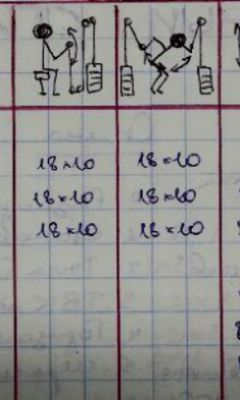 18×10 18×10
18×10 18×10
18×10 18×10